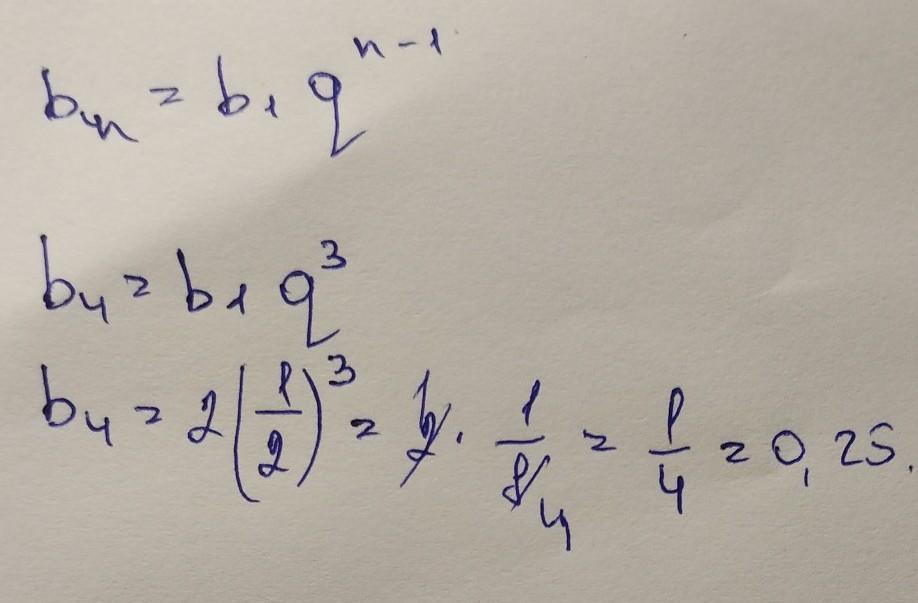 bn = b1 q^(n-1)
b4 = b1 q^3
b4 = 2(1/2)^3 = 2 · 1/8 4 = 1/4 = 0,25.